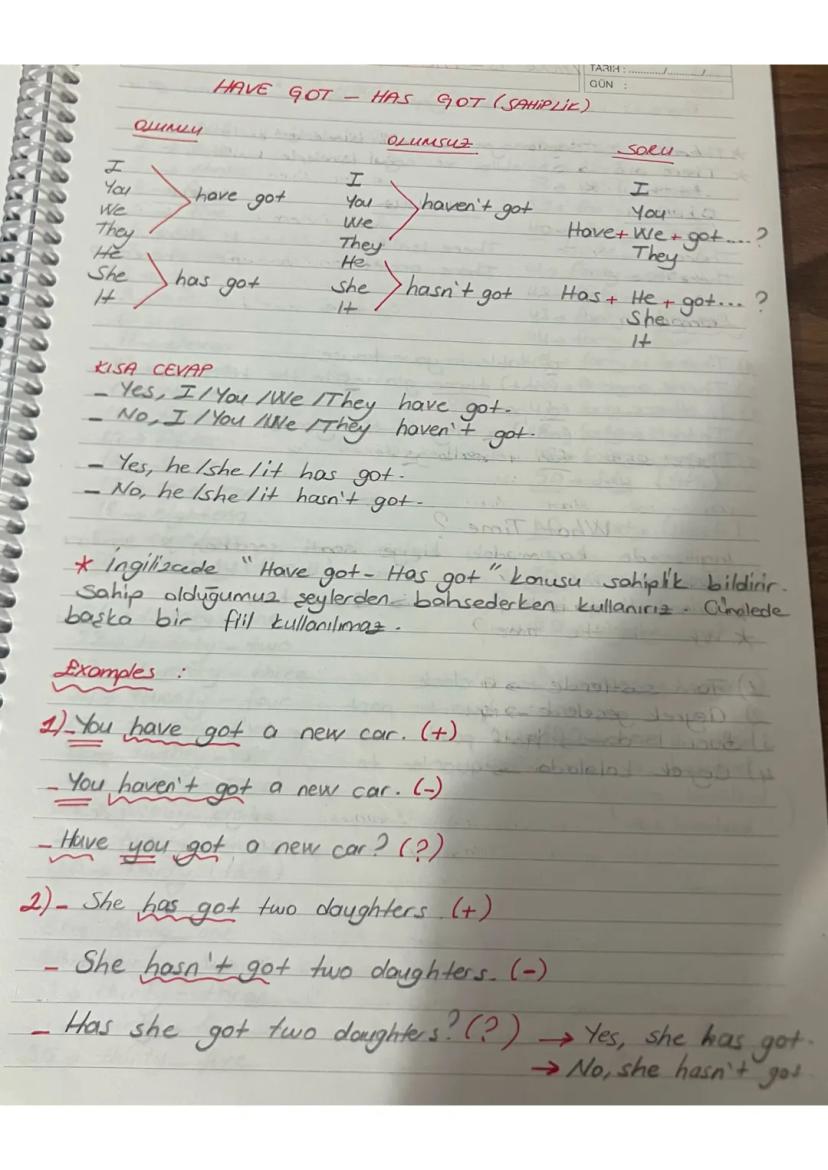 TARİH : ........../........../
GÜN :
HAVE GOT - HAS GOT (SAHİPLİK)
OLUMLU
I
You
We
They
have got
He
She
It
has got
OLUMSUZ
I
You
We
They
haven't got
He
She
It
hasn't got
SORU
I
You
Have + We + got....?
They
Has + He + got... ?
She
It
KISA CEVAP
- Yes, I / You / We / They have got.
- No, I / You / We / They haven't got.
- Yes, he / she / it has got.
- No, he / she / it hasn't got.
* İngilizcede "Have got - Has got" konusu sahiplik bildirir.
Sahip olduğumuz şeylerden bahsederken kullanırız. Cümlede
başka bir fiil kullanılmaz.
Examples :
1)- You have got a new car. (+)
- You haven't got a new car. (-)
- Have you got a new car? (?)
2)- She has got two daughters (+)
- She hasn't got two daughters. (-)
- Has she got two daughters? (?) → Yes, she has got.
→ No, she hasn't got